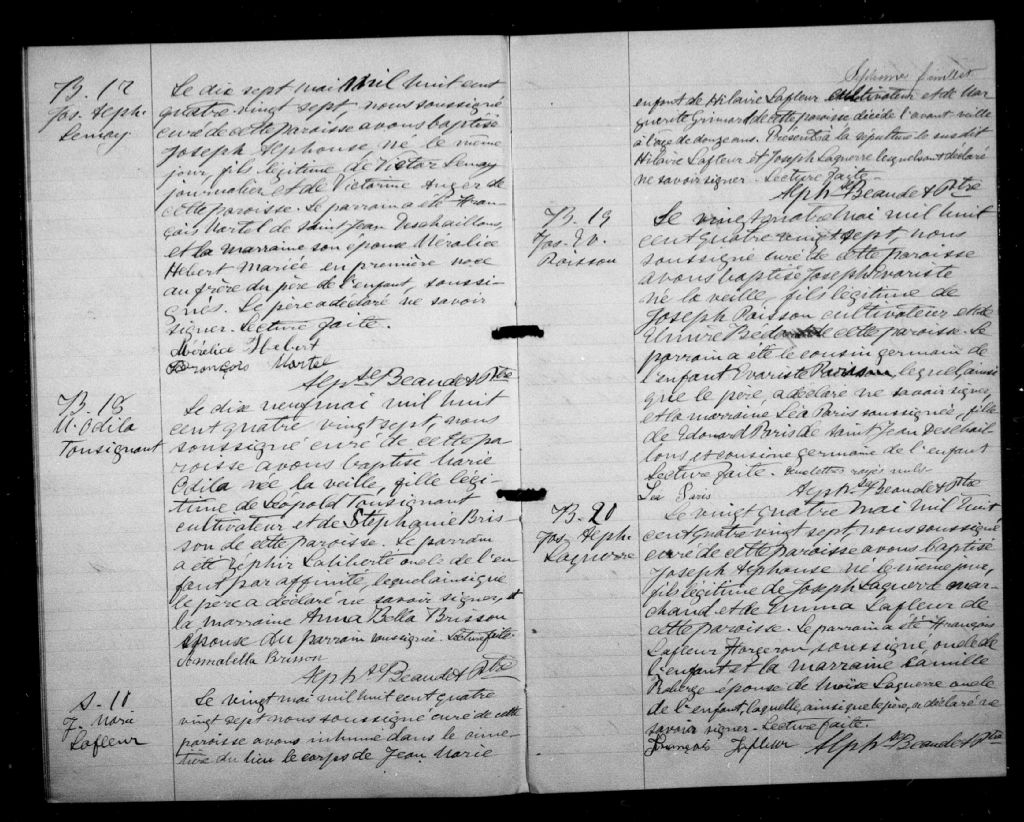 B. 17
Jos. Alph.
Lemay
Le dix sept mai Mil huit cent
quatre vingt sept, nous soussigné
curé de cette paroisse avons baptisé
Joseph Alphonse, né le même
jour, fils légitime de Victor Lemay
journalier et de Victorine Auger de
cette paroisse. Le parrain a été Fran-
çois Martel de saint Jean Deschaillons,
et la marraine son épouse Méralice
Hébert Mariée en première noce
au frère du père de l'enfant, soussi-
gnés. Le père a déclaré ne savoir
signer. Lecture faite.
Méralice Hebert
François Martel
Alphse Beaudet Ptre
B. 18
M. Odila
Tousignant
Le dix neuf mai mil huit
cent quatre vingt sept, nous
soussigné curé de cette pa
roisse avons baptisé Marie
Odila née la veille, fille légi-
time de Léopold Tousignant
cultivateur et de Stephanie Bris-
son de cette paroisse. Le parrain
a été Zéphir Laliberté oncle de l'en-
fant par affinité, lequel ainsi que
le père a déclaré ne savoir signer, et
la marraine Anna Bella Brisson
épouse du parrain soussignée. Lecture faite.
Annabella Brisson
Alphse Beaudet Ptre
S. 11
J. Marie
Lafleur
Le vingt mai mil huit cent quatre
vingt sept nous soussigné curé de cette
paroisse avons inhumé dans le cime-
tière du lieu le corps de Jean Marie
feuillet
enfant de Hilaire Lafleur cultivateur et de Mar
guerite Grimard de cette paroisse décédé l'avant veille
à l'âge de douze ans. Présent à la sépulture le susdit
Hilaire Lafleur et Joseph Laguerre lesquels ont déclaré
ne savoir signer. Lecture faite.
Alphse Beaudet Ptre
B. 19
Jos. Ev.
Poisson
Le vingt quatre mai mil huit
cent quatre vingt sept, nous
soussigné curé de cette paroisse
avons baptisé Joseph Evariste
né la veille, fils légitime de
Joseph Poisson cultivateur et de
de cette paroisse. Le
parrain a été le cousin germain de
l'enfant Evariste Poisson, lequel ainsi
que le père, a déclaré ne savoir signer,
et la marraine Léa Paris soussignée, fille
de Edouard Paris de saint Jean Deschail
lons et cousine germaine de l'enfant
Lecture faite. lettres rayés nuls.
Léa Paris
Alphse Beaudet Ptre
B. 20
Jos. Alph.
Laguerre
Le vingt quatre mai Mil huit
cent quatre vingt sept, nous soussigné
curé de cette paroisse avons baptisé
Joseph Alphonse né le même jour,
fils légitime de Joseph Laguerre mar-
chand et de Emma Lafleur de
cette paroisse. Le parrain a été François
Lafleur Forgeron, soussigné, oncle de
l'enfant et la marraine Camille
Roberge épouse de Moïse Laguerre oncle
de l'enfant, laquelle, ainsi que le père, a déclaré ne
savoir signer. Lecture faite.
François Lafleur
Alphse Beaudet Ptre